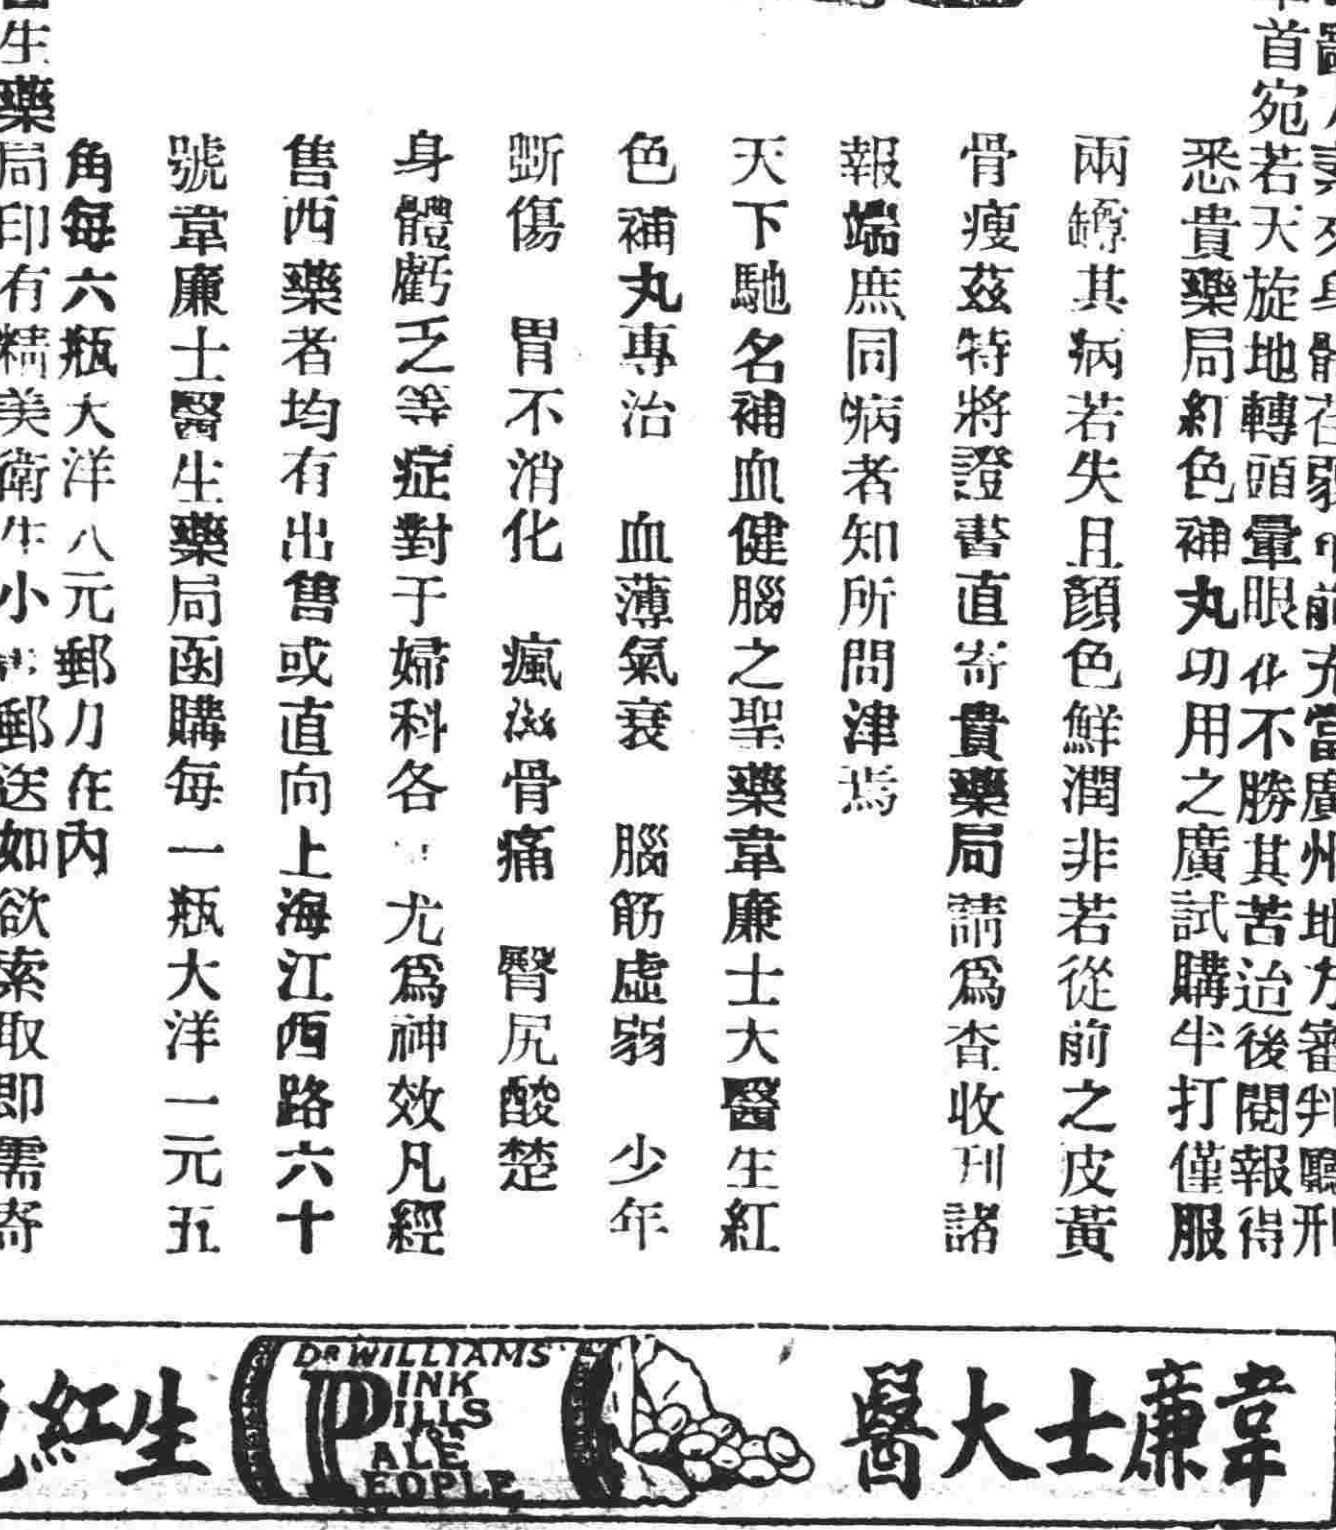 妻夕身體
前充當廣州地方審判廳刑
首宛若天旋地轉頭暈眼花不勝其苦迨後閱報得
悉貴藥局紅色補丸功用之廣試購半打僅服
兩罇其病若失且顏色鮮潤非若從前之皮黃
骨瘦茲特將證書直寄貴藥局請為查收刊諸
報端庶同病者知所問津焉
天下馳名補血健腦之聖藥韋廉士大醫生紅
色補丸專治 血薄氣衰 腦筋虛弱 少年
斲傷 胃不消化 瘋濕骨痛 腎尻酸楚
身體虧乏等症對于婦科各 尤為神效凡經
售西藥者均有出售或直向上海江西路六十
號韋廉士醫生藥局函購每一瓶大洋一元五
角每六瓶大洋八元郵力在內
生藥局印有精美衛生小 郵送如欲索取即需寄
韋廉士大醫
DR WILLIAMS'
PINK
PILLS
PALE
PEOPLE
生紅色